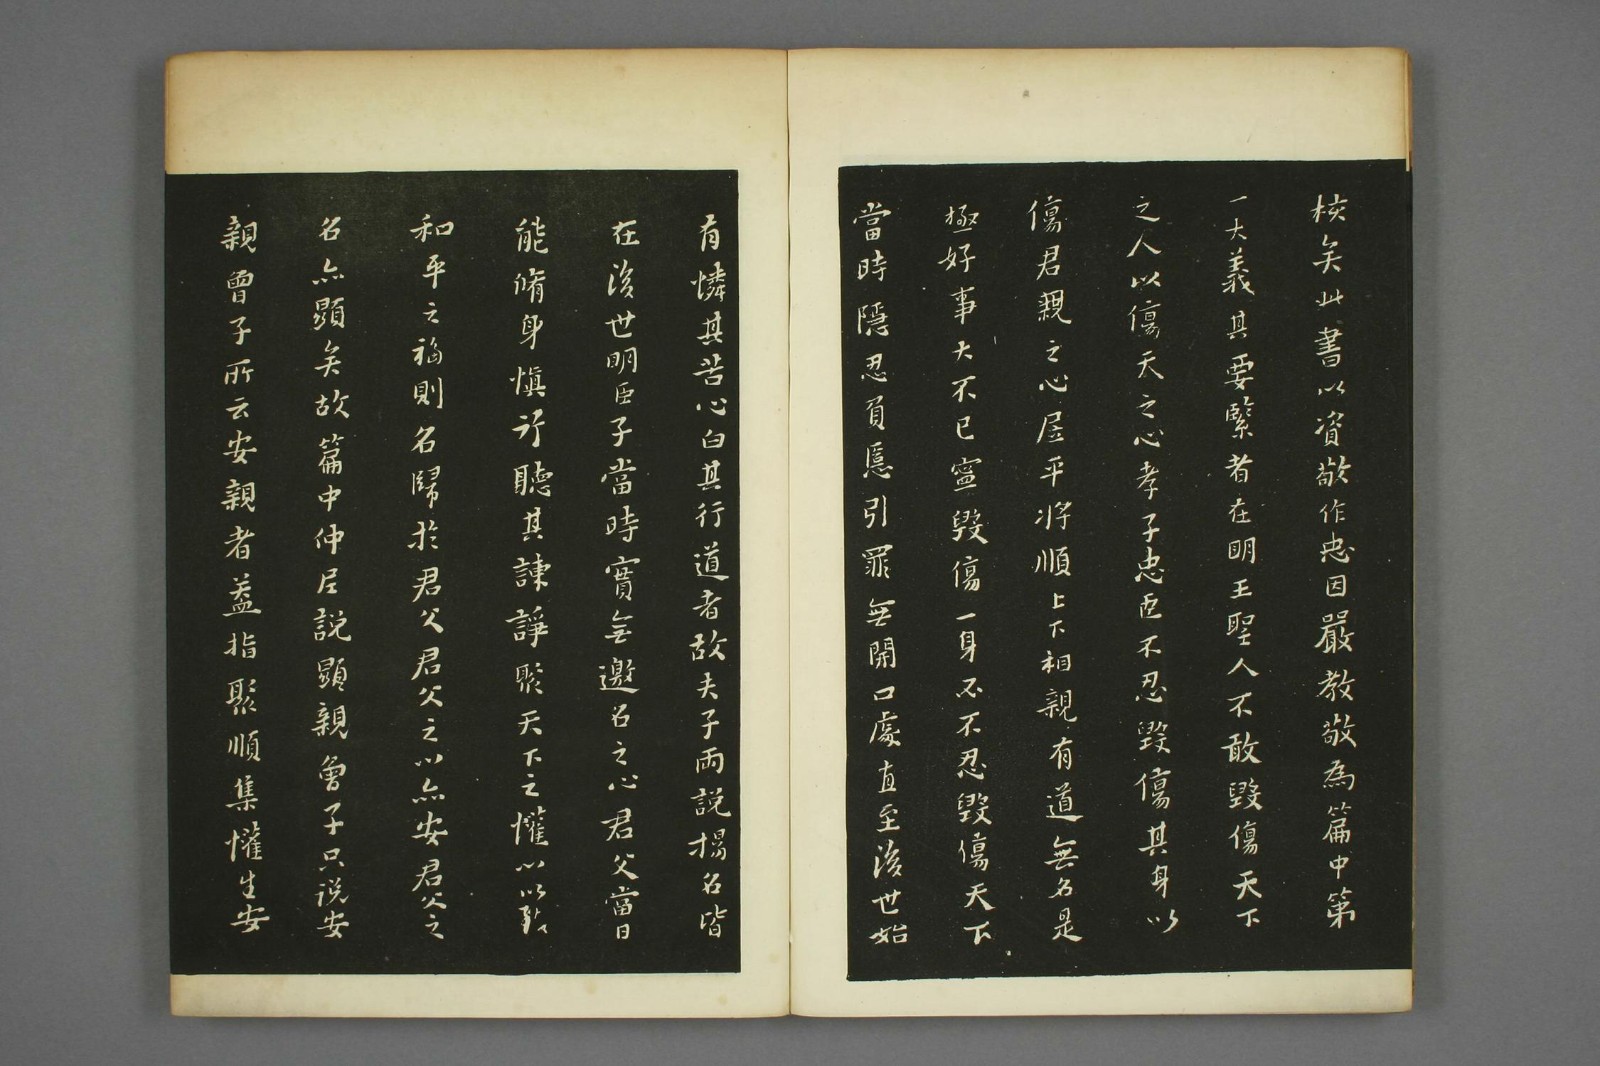 核矣此書以資敬作忠因嚴教敬為篇中第
一大義其要緊者在明王聖人不敢毀傷天下
之人以傷天之心孝子忠臣不忍毀傷其身以
傷君親之心居平將順上下相親有道無名是
極好事大不已寧毀傷一身必不忍毀傷天下
當時隱忍負慝引罪無開口處直至後世始
有憐其苦心白其行道者故夫子兩說揚名皆
在後世明臣子當時實無邀名之心君父當日
能脩身慎行聽其諫諍聚天下之懽心以致
和平之福則名歸於君父君父之心亦安君父之
名亦顯矣故篇中仲尼說顯親曾子只說安
親曾子所云安親者蓋指聚順集懽生安